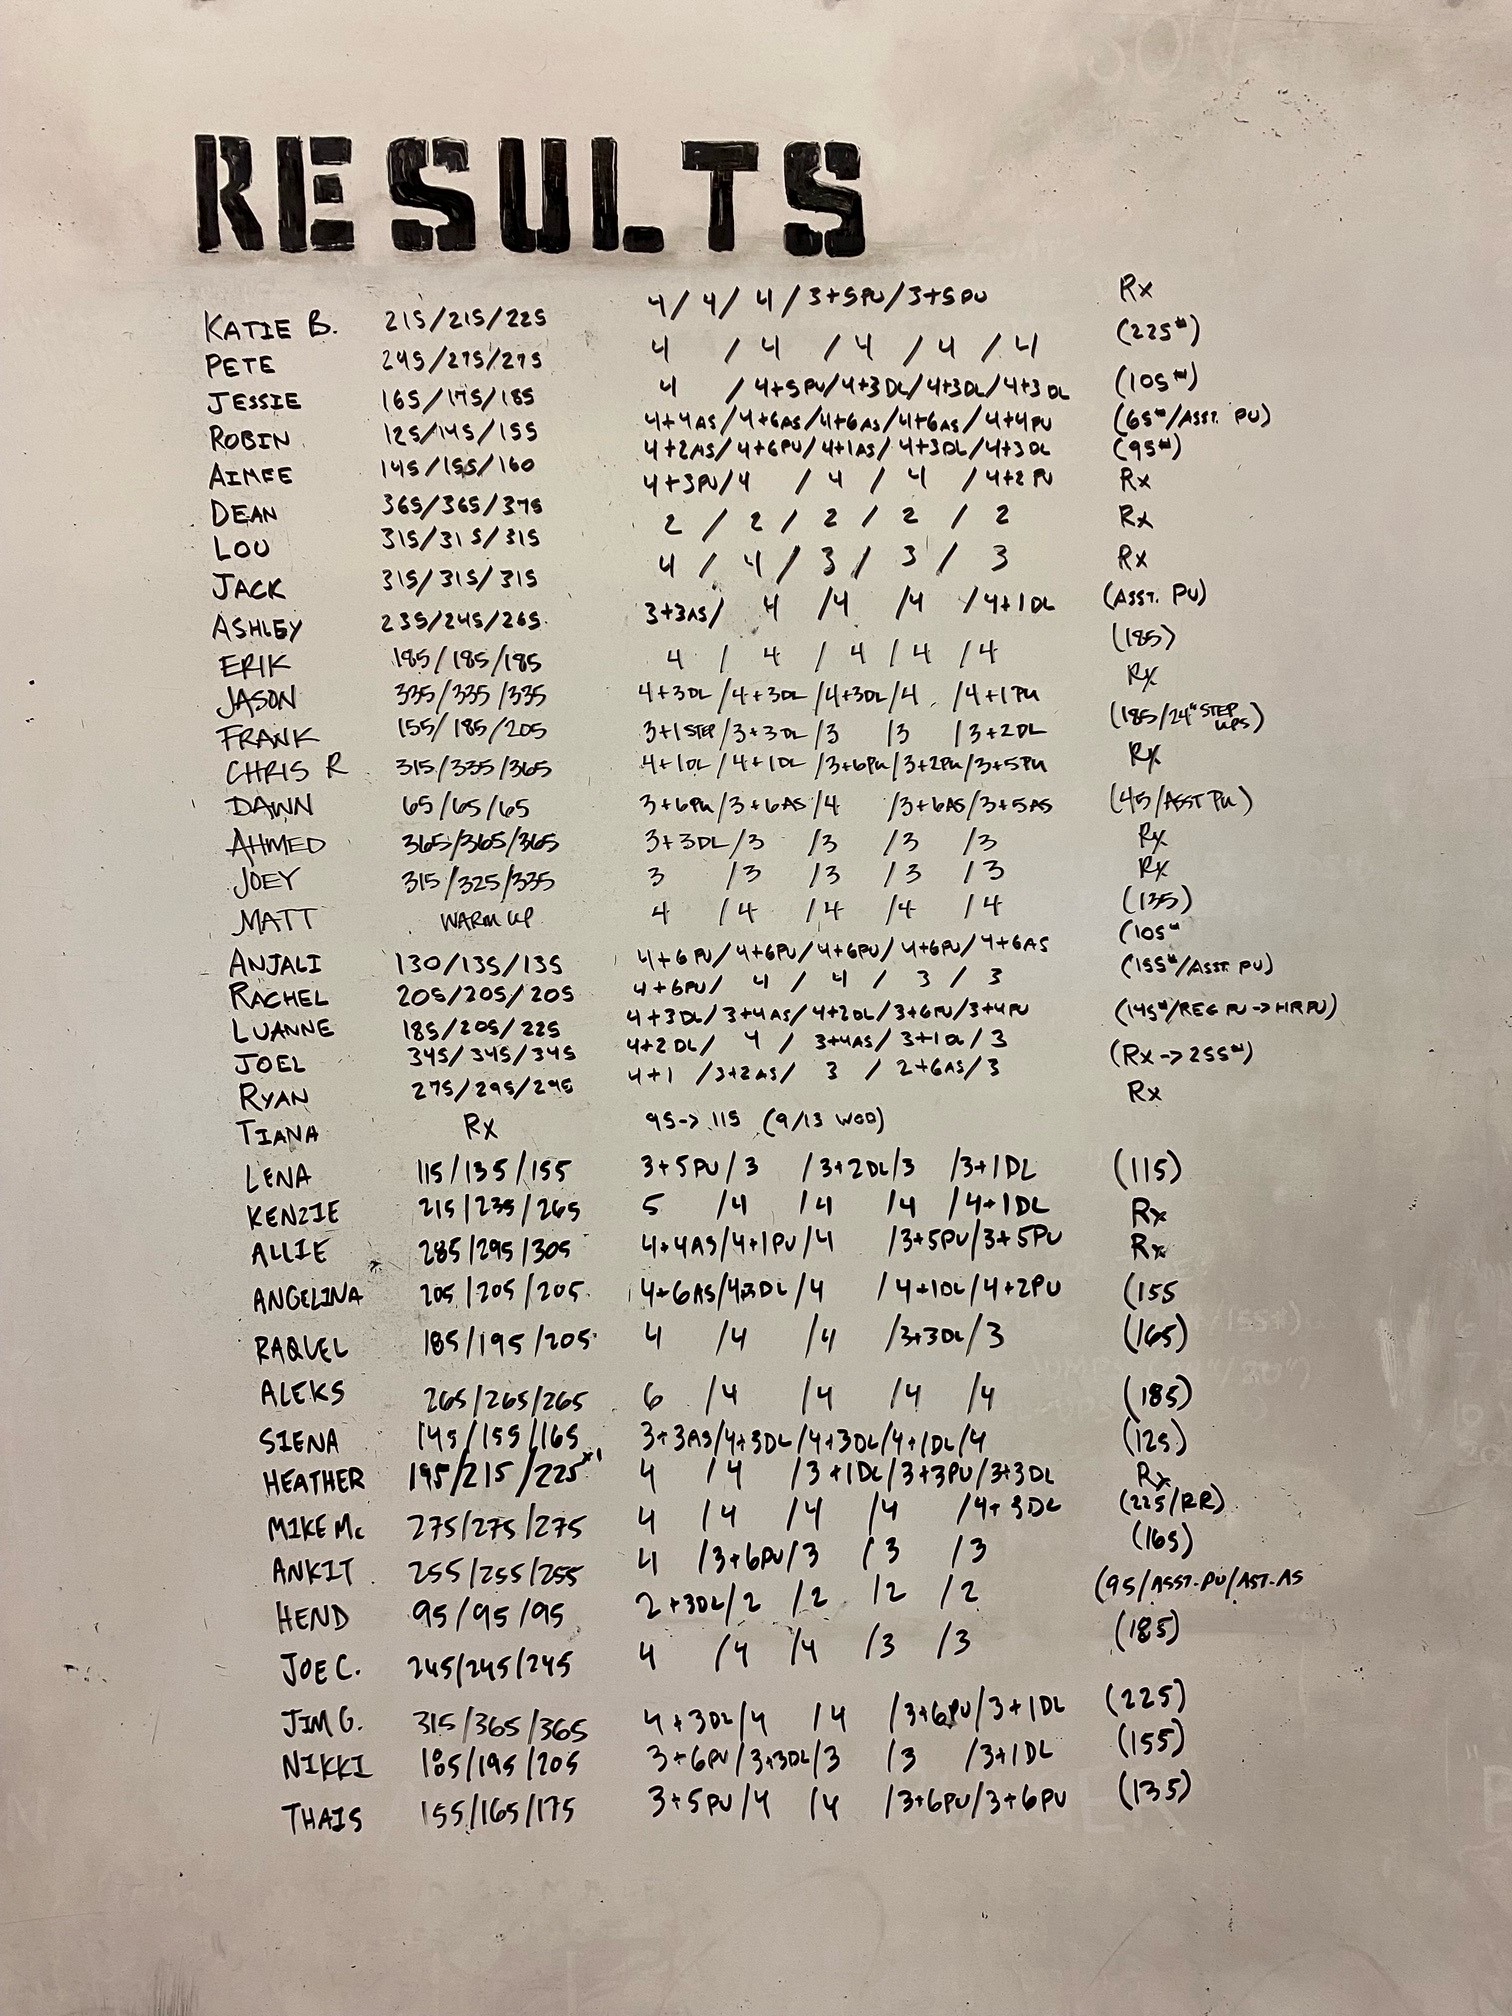 RESULTS
KATIE B. 215/215/225 4/4/4/3+5PU/3+5PU Rx
PETE 245/275/275 4/4/4/4/4 (225#)
JESSIE 165/175/185 4/4+5PU/4+3DL/4+3DL/4+3DL (105#)
ROBIN 125/145/155 4+4AS/4+6AS/4+6AS/4+6AS/4+4PU (65#/ASST. PU)
AIMEE 145/155/160 4+2AS/4+6PU/4+1AS/4+3DL/4+3DL (95#)
DEAN 365/365/375 4+3PU/4/4/4/4+2PU Rx
LOU 315/315/315 2/2/2/2/2 Rx
JACK 315/315/315 4/4/3/3/3 Rx
ASHLEY 235/245/265 3+3AS/4/4/4/4+1DL (ASST. PU)
ERIK 185/185/185 4/4/4/4/4 (185)
JASON 335/335/335 4+3DL/4+3DL/4+3DL/4/4+1PU Rx
FRANK 155/185/205 3+1STEP/3+3DL/3/3/3+2DL (185/24" STEP UPS)
CHRIS R 315/335/365 4+1DL/4+1DL/3+6PU/3+2PU/3+5PU Rx
DAWN 65/65/65 3+6PU/3+6AS/4/3+6AS/3+5AS (45/ASST PU)
AHMED 365/365/365 3+3DL/3/3/3/3 Rx
JOEY 315/325/335 3/3/3/3/3 Rx
MATT WARM UP 4/4/4/4/4 (135)
ANJALI 130/135/135 4+6PU/4+6PU/4+6PU/4+6PU/4+6AS (105#
RACHEL 205/205/205 4+6PU/4/4/3/3 (155#/ASST. PU)
LUANNE 185/205/225 4+3DL/3+4AS/4+2DL/3+6PU/3+4PU (145#/REG PU->HRPU)
JOEL 345/345/345 4+2DL/4/3+4AS/3+1DL/3 (Rx->255#)
RYAN 275/295/295 4+1/3+2AS/3/2+6AS/3 Rx
TIANA Rx 95->115 (9/13 WOD)
LENA 115/135/155 3+5PU/3/3+2DL/3/3+1DL (115)
KENZIE 215/235/265 5/4/4/4/4+1DL Rx
ALLIE 285/295/305 4+4AS/4+1PU/4/3+5PU/3+5PU Rx
ANGELINA 205/205/205 4+6AS/4+3DL/4/4+1DL/4+2PU (155
RAQUEL 185/195/205 4/4/4/3+3DL/3 (165)
ALEKS 265/265/265 6/4/4/4/4 (185)
SIENA 145/155/165 3+3AS/4+3DL/4+3DL/4+1DL/4 (125)
HEATHER 195/215/225x1 4/4/3+1DL/3+3PU/3+3DL Rx
MIKE Mc 275/275/275 4/4/4/4/4+3DL (225/RR)
ANKIT 255/255/255 4/3+6PU/3/3/3 (165)
HEND 95/95/95 2+3DL/2/2/2/2 (95/ASST.PU/AST.AS
JOE C. 245/245/245 4/4/4/3/3 (185)
JIM G. 315/365/365 4+3DL/4/4/3+6PU/3+1DL (225)
NIKKI 185/195/205 3+6PU/3+3DL/3/3/3+1DL (155)
THAIS 155/165/175 3+5PU/4/4/3+6PU/3+6PU (135)